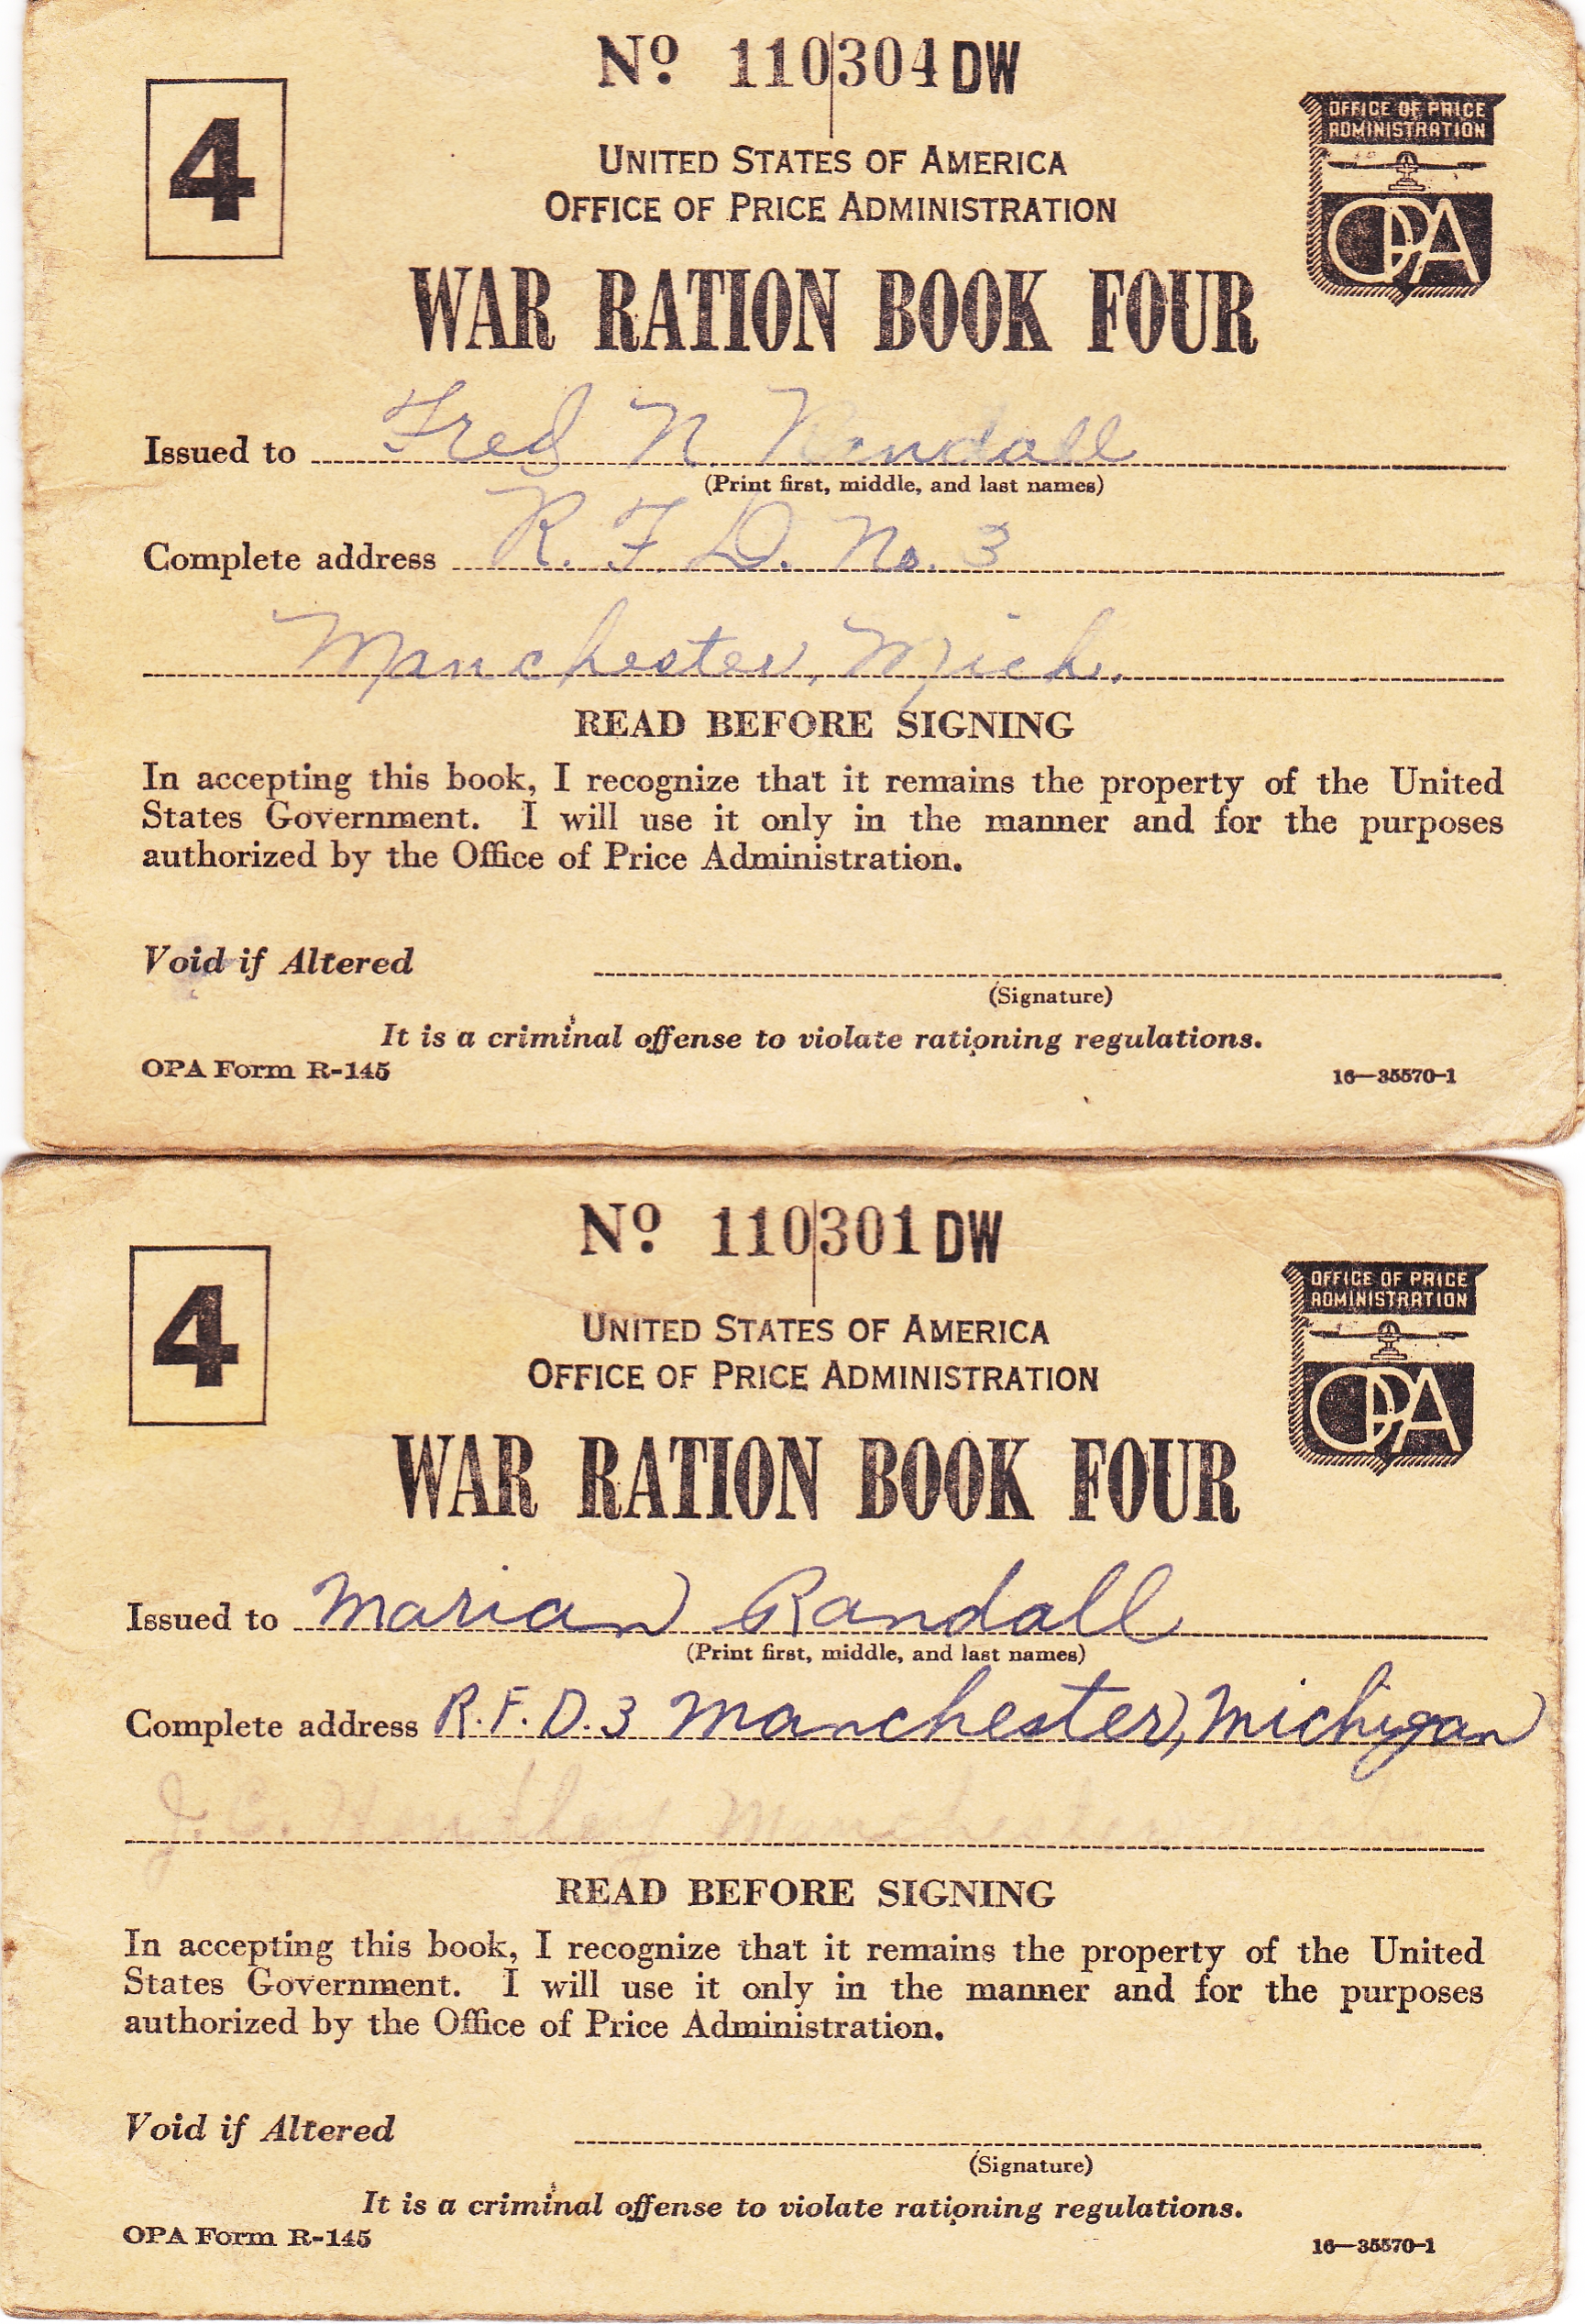 Nº 110304 DW
4
OFFICE OF PRICE
ADMINISTRATION
OPA
UNITED STATES OF AMERICA
OFFICE OF PRICE ADMINISTRATION
WAR RATION BOOK FOUR
Issued to Fred N. Randall
(Print first, middle, and last names)
Complete address R. F. D. No. 3
Manchester, Mich.
READ BEFORE SIGNING
In accepting this book, I recognize that it remains the property of the United
States Government. I will use it only in the manner and for the purposes
authorized by the Office of Price Administration.
Void if Altered
(Signature)
It is a criminal offense to violate rationing regulations.
OPA Form R-145 16—35570-1
Nº 110301 DW
4
OFFICE OF PRICE
ADMINISTRATION
OPA
UNITED STATES OF AMERICA
OFFICE OF PRICE ADMINISTRATION
WAR RATION BOOK FOUR
Issued to Marian Randall
(Print first, middle, and last names)
Complete address R.F.D.3 Manchester, Michigan
J. C. Manchester
READ BEFORE SIGNING
In accepting this book, I recognize that it remains the property of the United
States Government. I will use it only in the manner and for the purposes
authorized by the Office of Price Administration.
Void if Altered
(Signature)
It is a criminal offense to violate rationing regulations.
OPA Form R-145 16—35570-1